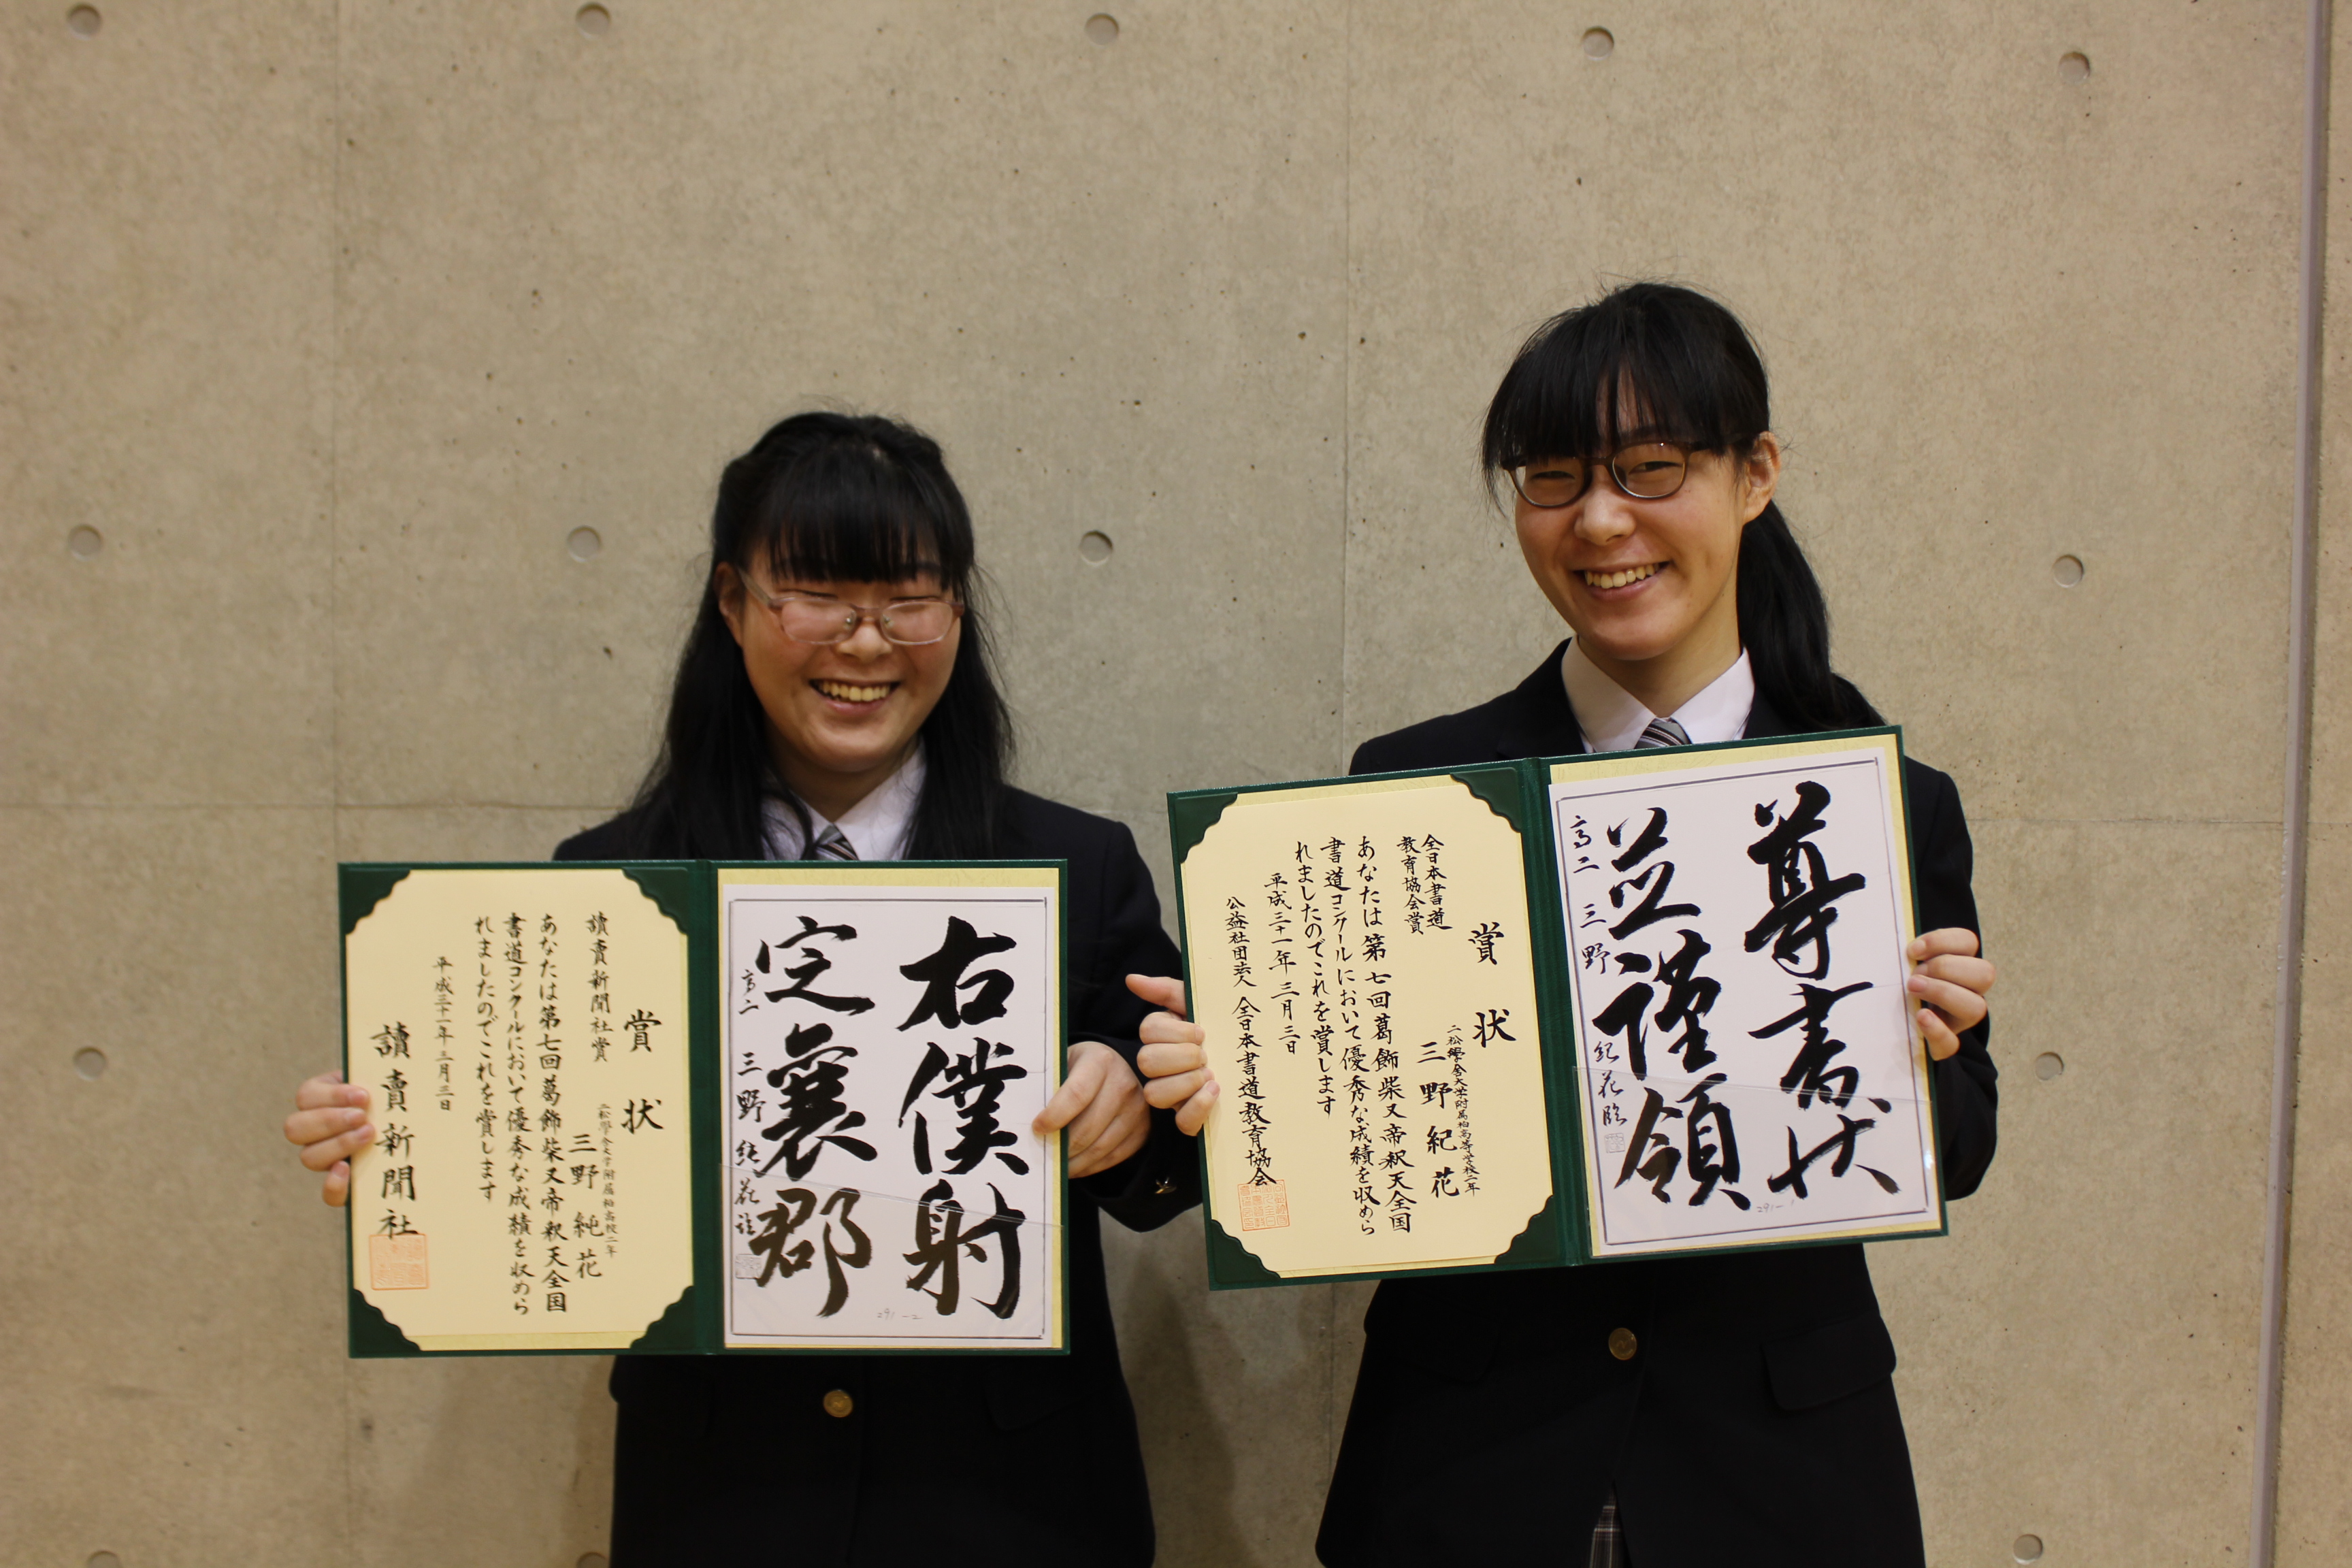 賞状
讀賣新聞社賞
二松學舍大学附属柏高校二年
三野 純花
あなたは第七回葛飾柴又帝釈天全国
書道コンクールにおいて優秀な成績を収めら
れましたのでこれを賞します
平成三十一年三月三日
讀賣新聞社
右僕射
定襄郡
高二 三野 純花臨
291-2
賞状
全日本書道
教育協会賞
二松學舍大学附属柏高等学校二年
三野 紀花
あなたは第七回葛飾柴又帝釈天全国
書道コンクールにおいて優秀な成績を収めら
れましたのでこれを賞します
平成三十一年三月三日
公益社団法人 全日本書道教育協会
尊書状
並謹領
高二 三野 紀花臨